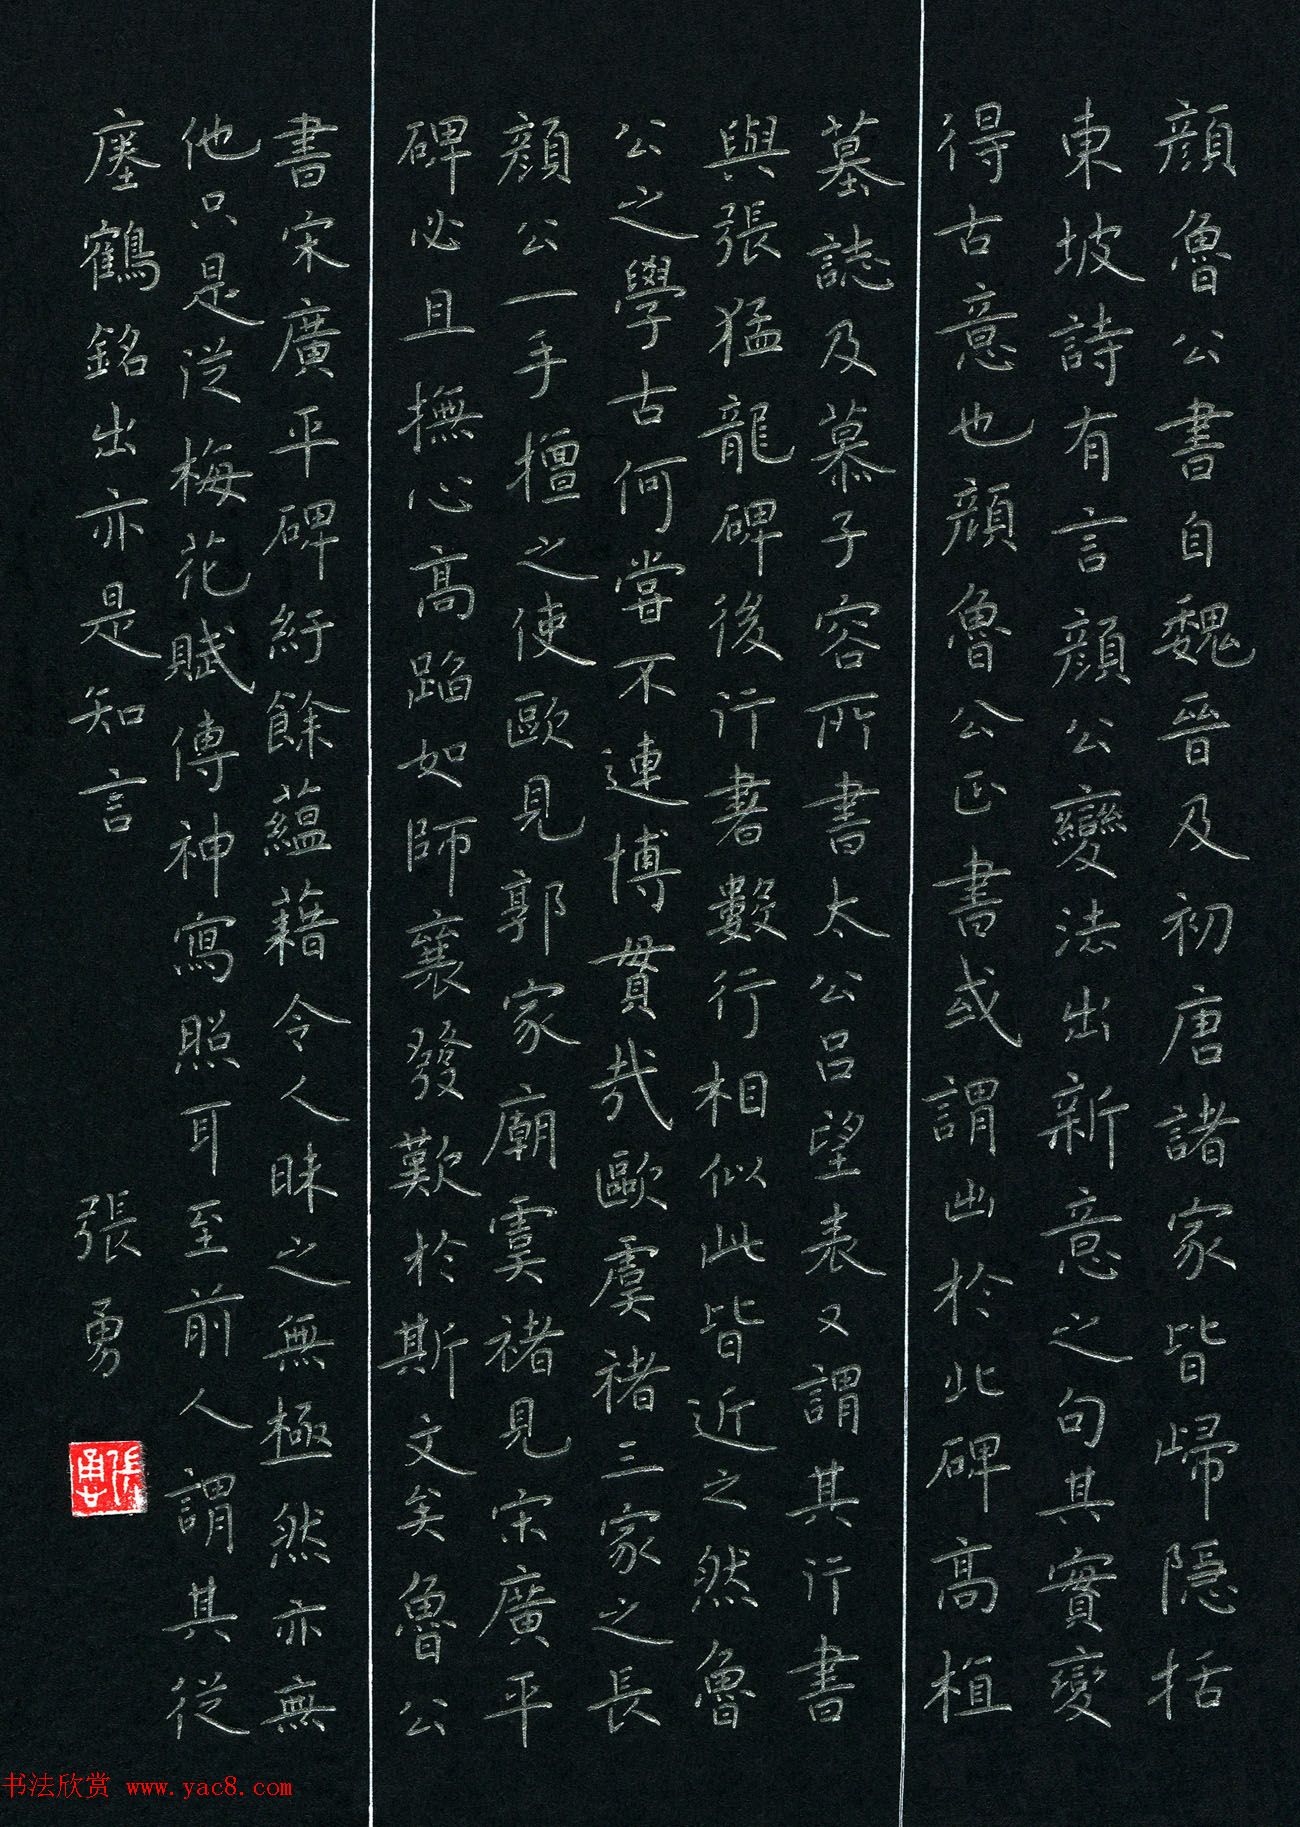 顏魯公書自魏晉及初唐諸家皆歸隱括
東坡詩有言顏公變法出新意之句其實變
得古意也顏魯公正書或謂出於此碑高植
墓誌及慕子容所書太公呂望表又謂其行書
與張猛龍碑後行書數行相似此皆近之然魯
公之學古何嘗不連博貫哉歐虞褚三家之長
顏公一手擅之使歐見郭家廟虞褚見宋廣平
碑必且撫心高蹈如師襄發歎於斯文矣魯公
書宋廣平碑紆餘蘊藉令人味之無極然亦無
他只是從梅花賦傳神寫照耳至前人謂其從
瘞鶴銘出亦是知言
張勇
張勇
书法欣赏 www.yac8.com